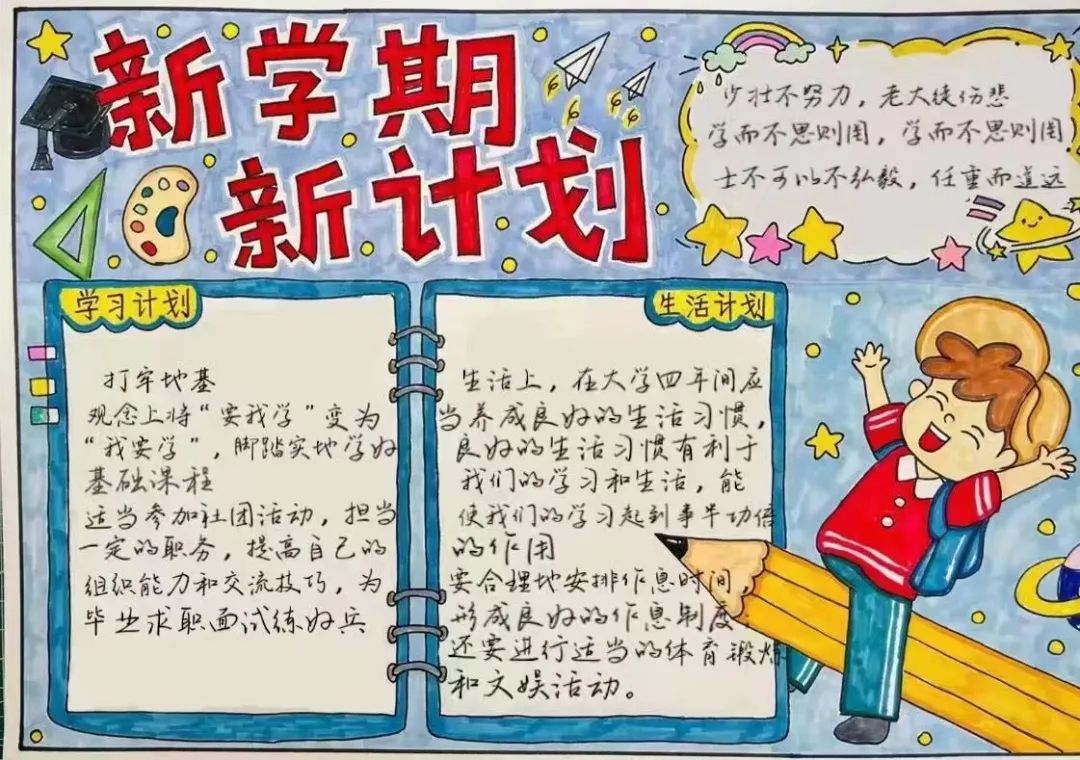 新学期
新计划
少壮不努力，老大徒伤悲
学而不思则罔，学而不思则罔
士不可以不弘毅，任重而道远
学习计划
打牢地基
观念上将“要我学”变为
“我要学”，脚踏实地学好
基础课程
适当参加社团活动，担当
一定的职务，提高自己的
组织能力和交流技巧，为
毕业求职面试练好兵
生活计划
生活上，在大学四年间应
当养成良好的生活习惯，
良好的生活习惯有利于
我们的学习和生活，能
使我们的学习起到事半功倍
的作用
要合理地安排作息时间
形成良好的作息制度
还要进行适当的体育锻炼
和文娱活动。